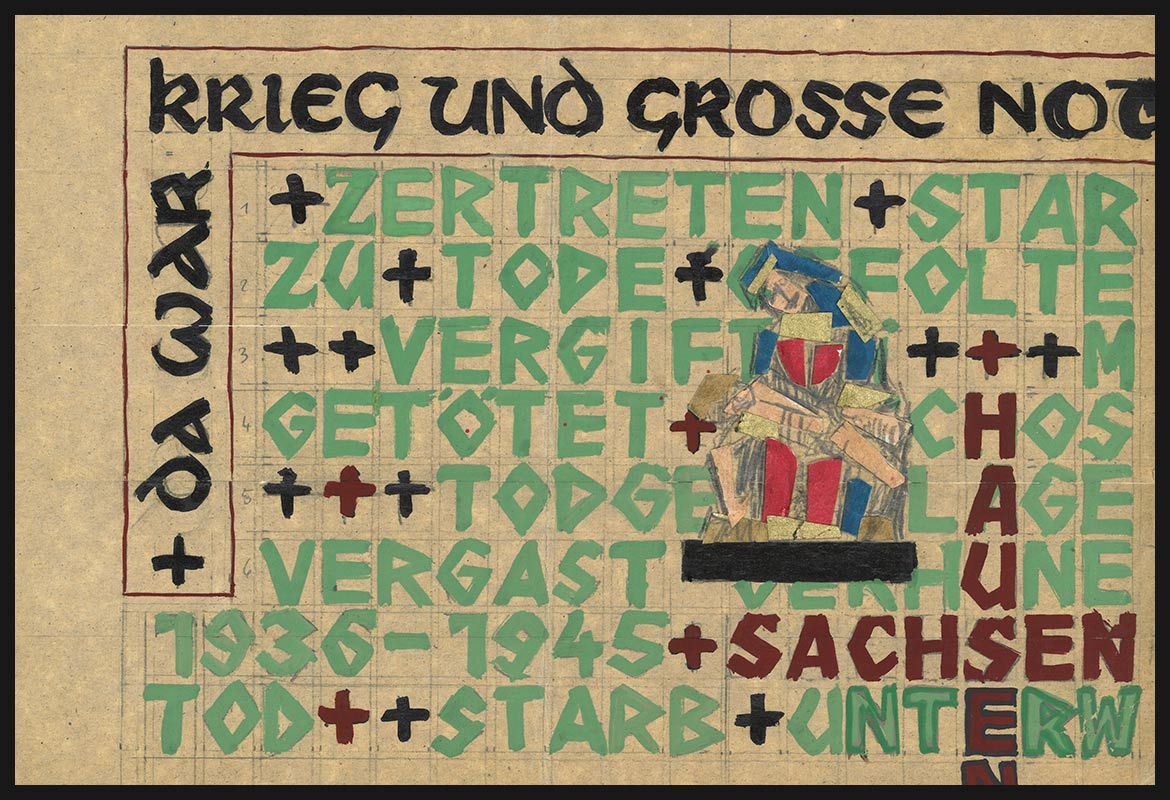 + DA WAR
KRIEG UND GROSSE NOT
+ZERTRETEN+STAR
ZU+TODE+GEFOLTE
++VERGIFT+++M
GETÖTET+CHOS
+++TODGELAGE
VERGAST VERHUNE
1936-1945+SACHSEN
TOD++STARB+UNTERW
HAUSEN